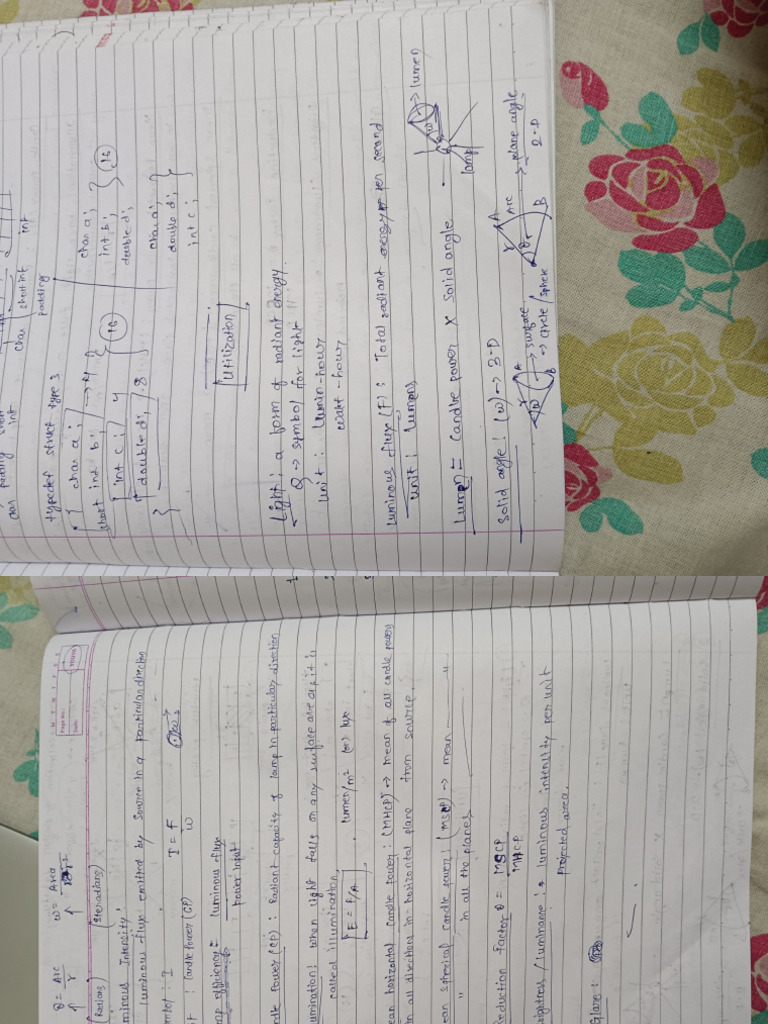 char a;
int b;
double d;
16
char a;
double d;
int c;
char short int int
padding
padding short
char int
typedef struct type 3
{ char a;
short int b; → 4
int c; 4
double d; 8
}
16
Utilization
Light : a form of radiant energy.
Q → symbol for light
unit : Lumin-hour
watt-hour
luminous flux (F) : Total radiant energy per second
unit : lumens
Lumen = Candle power X Solid angle
lumen
lamp
Solid angle : (ω) → 3-D
→ surface
→ circle / sphere
A
B
r
Arc
→ plane angle
2-D
A
B
r
θ
Page No.:
Date:
θ = Arc / r
(Radians)
ω = Area / r²
(Steradians)
minous Intensity :
luminous flux emitted by source in a particular direction
mbol : I
I = F / ω
t : Candle Power (CP)
mp efficiency = luminous flux / power input
ndle Power (CP) : Radiant capacity of lamp in particular direction
umination : When light falls on any surface area, it is
called illumination.
E = F/A
lumen/m² (or) lux
ean horizontal candle power : (MHCP) → mean of all candle powers
in all directions in horizontal plane from source.
ean spherical candle power : (MSCP) → mean "
" in all the planes
Reduction factor θ = MSCP / MHCP
rightness / luminance : luminous intensity per unit
projected area.
Glare :